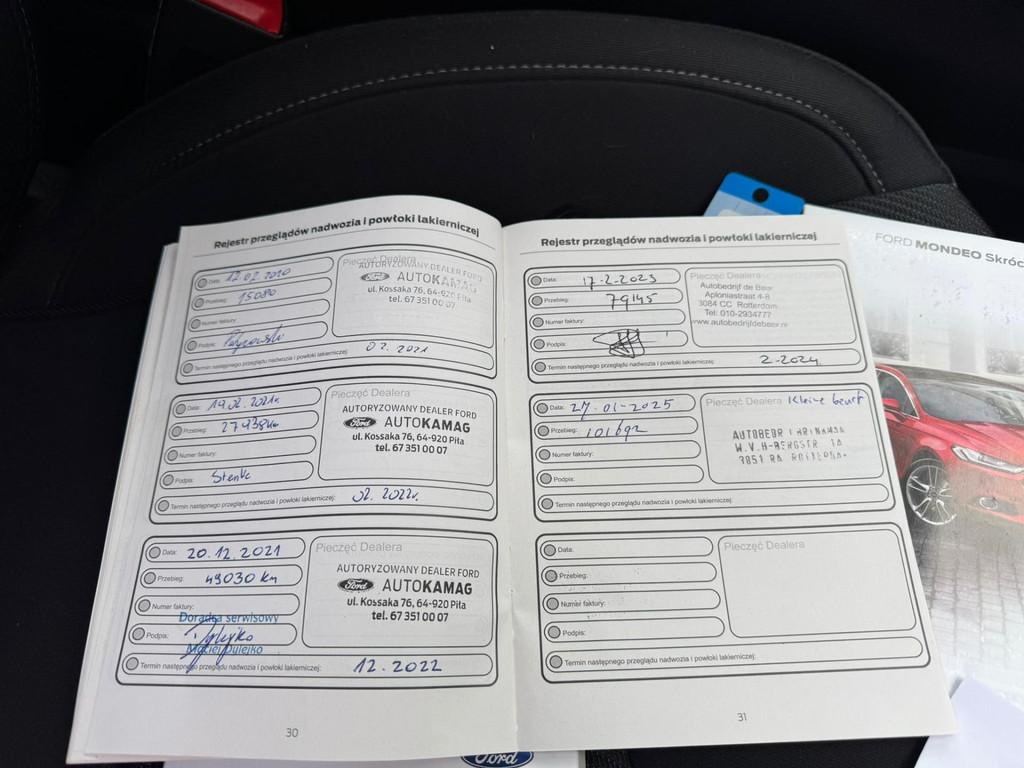 Rejestr przeglądów nadwozia i powłoki lakierniczej
Data: 12.02.2020
Przebieg: 15080
Numer faktury:
Podpis:
Termin następnego przeglądu nadwozia i powłoki lakierniczej: 02.2021
Pieczęć Dealera
AUTORYZOWANY DEALER FORD
Ford AUTOKAMAG
ul. Kossaka 76, 64-920 Piła
tel. 67 351 00 07
Data: 19.02.2021r.
Przebieg: 27938km
Numer faktury:
Podpis:
Termin następnego przeglądu nadwozia i powłoki lakierniczej: 02.2022r.
Pieczęć Dealera
AUTORYZOWANY DEALER FORD
Ford AUTOKAMAG
ul. Kossaka 76, 64-920 Piła
tel. 67 351 00 07
Data: 20.12.2021
Przebieg: 49030 km
Numer faktury:
Doradca serwisowy
Podpis:
Maciej Dulejko
Termin następnego przeglądu nadwozia i powłoki lakierniczej: 12.2022
Pieczęć Dealera
AUTORYZOWANY DEALER FORD
Ford AUTOKAMAG
ul. Kossaka 76, 64-920 Piła
tel. 67 351 00 07
30
Rejestr przeglądów nadwozia i powłoki lakierniczej
Data: 17-2-2023
Przebieg: 79145
Numer faktury:
Podpis:
Termin następnego przeglądu nadwozia i powłoki lakierniczej: 2-2024
Pieczęć Dealera
Autobedrijf de Beer
Aploniastraat 4-8
3084 CC Rotterdam
Tel: 010-2934777
www.autobedrijfdebeer.nl
Data: 27-01-2025
Przebieg: 101692
Numer faktury:
Podpis:
Termin następnego przeglądu nadwozia i powłoki lakierniczej:
Pieczęć Dealera Kleine beurt
W.V.H-BERGSTR 1A
Data:
Przebieg:
Numer faktury:
Podpis:
Termin następnego przeglądu nadwozia i powłoki lakierniczej:
Pieczęć Dealera
31
FORD MONDEO Skróc
Ford